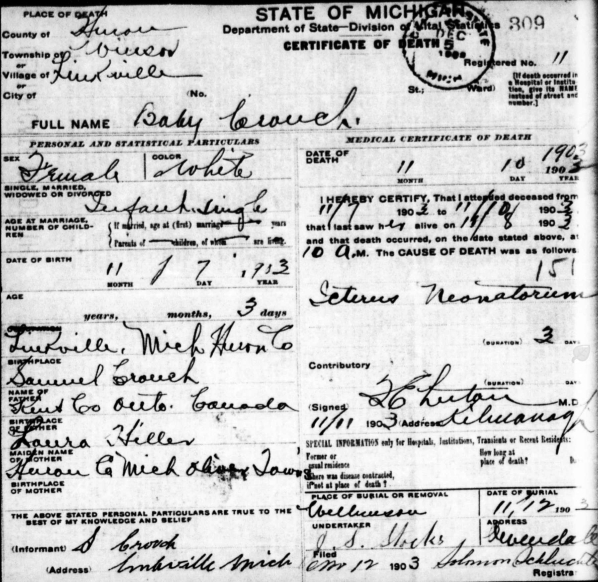 STATE OF MICHIGAN
Department of State—Division of Vital Statistics
CERTIFICATE OF DEATH
309
PLACE OF DEATH
County of Huron
Township of
Village of Linkville
City of
(No. St.; Ward)
Registered No. 11
[If death occurred in
a Hospital or Institu-
tion, give its NAME
instead of street and
number.]
FULL NAME Baby Crouch.
PERSONAL AND STATISTICAL PARTICULARS
SEX Female
COLOR White
SINGLE, MARRIED,
WIDOWED OR DIVORCED
Infant Single
AGE AT MARRIAGE,
NUMBER OF CHILD-
REN
{If married, age at (first) marriage years
Parents of children, of whom are living.
DATE OF BIRTH
11 7 1903
MONTH DAY YEAR
AGE
years, months, 3 days
Linkville, Mich Huron Co
BIRTHPLACE
Samuel Crouch
NAME OF
FATHER
Kent Co Onto. Canada
BIRTHPLACE
OF FATHER
Laura Hiller
MAIDEN NAME
OF MOTHER
Huron Co Mich Oliver Town
BIRTHPLACE
OF MOTHER
THE ABOVE STATED PERSONAL PARTICULARS ARE TRUE TO THE
BEST OF MY KNOWLEDGE AND BELIEF
(Informant) S Crouch
(Address) Linkville Mich
MEDICAL CERTIFICATE OF DEATH
DATE OF
DEATH
11 10 1903
MONTH DAY YEAR
I HEREBY CERTIFY, That I attended deceased from
11/7 1903 to 11/10/ 1903
that I last saw her alive on 11/8 1903
and that death occurred, on the date stated above, at
10 A.M. The CAUSE OF DEATH was as follows
151
Icterus Neonatorum
(DURATION) 3 DAYS
Contributory
(DURATION) DAYS
(Signed) M.D.
11/11 1903 (Address) Kilmanagh
SPECIAL INFORMATION only for Hospitals, Institutions, Transients or Recent Residents:
Former or
usual residence
How long at
place of death?
Where was disease contracted,
if not at place of death?
PLACE OF BURIAL OR REMOVAL
Williamson
DATE OF BURIAL
11/12 1903
UNDERTAKER
J. S. Stocks
ADDRESS
Filed Nov 12 1903
Registrar